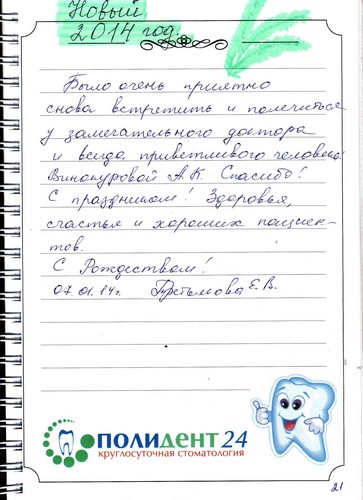 Новый
2014 год.
Было очень приятно
снова встретить и полечиться
у замечательного доктора
и всегда приветливого человека!
Винокуровой А.К. Спасибо!
С праздником! Здоровья,
счастья и хороших пациен-
тов.
С Рождеством!
07.01.14г. Е.В.
ПОЛИДЕНТ 24
круглосуточная стоматология
21